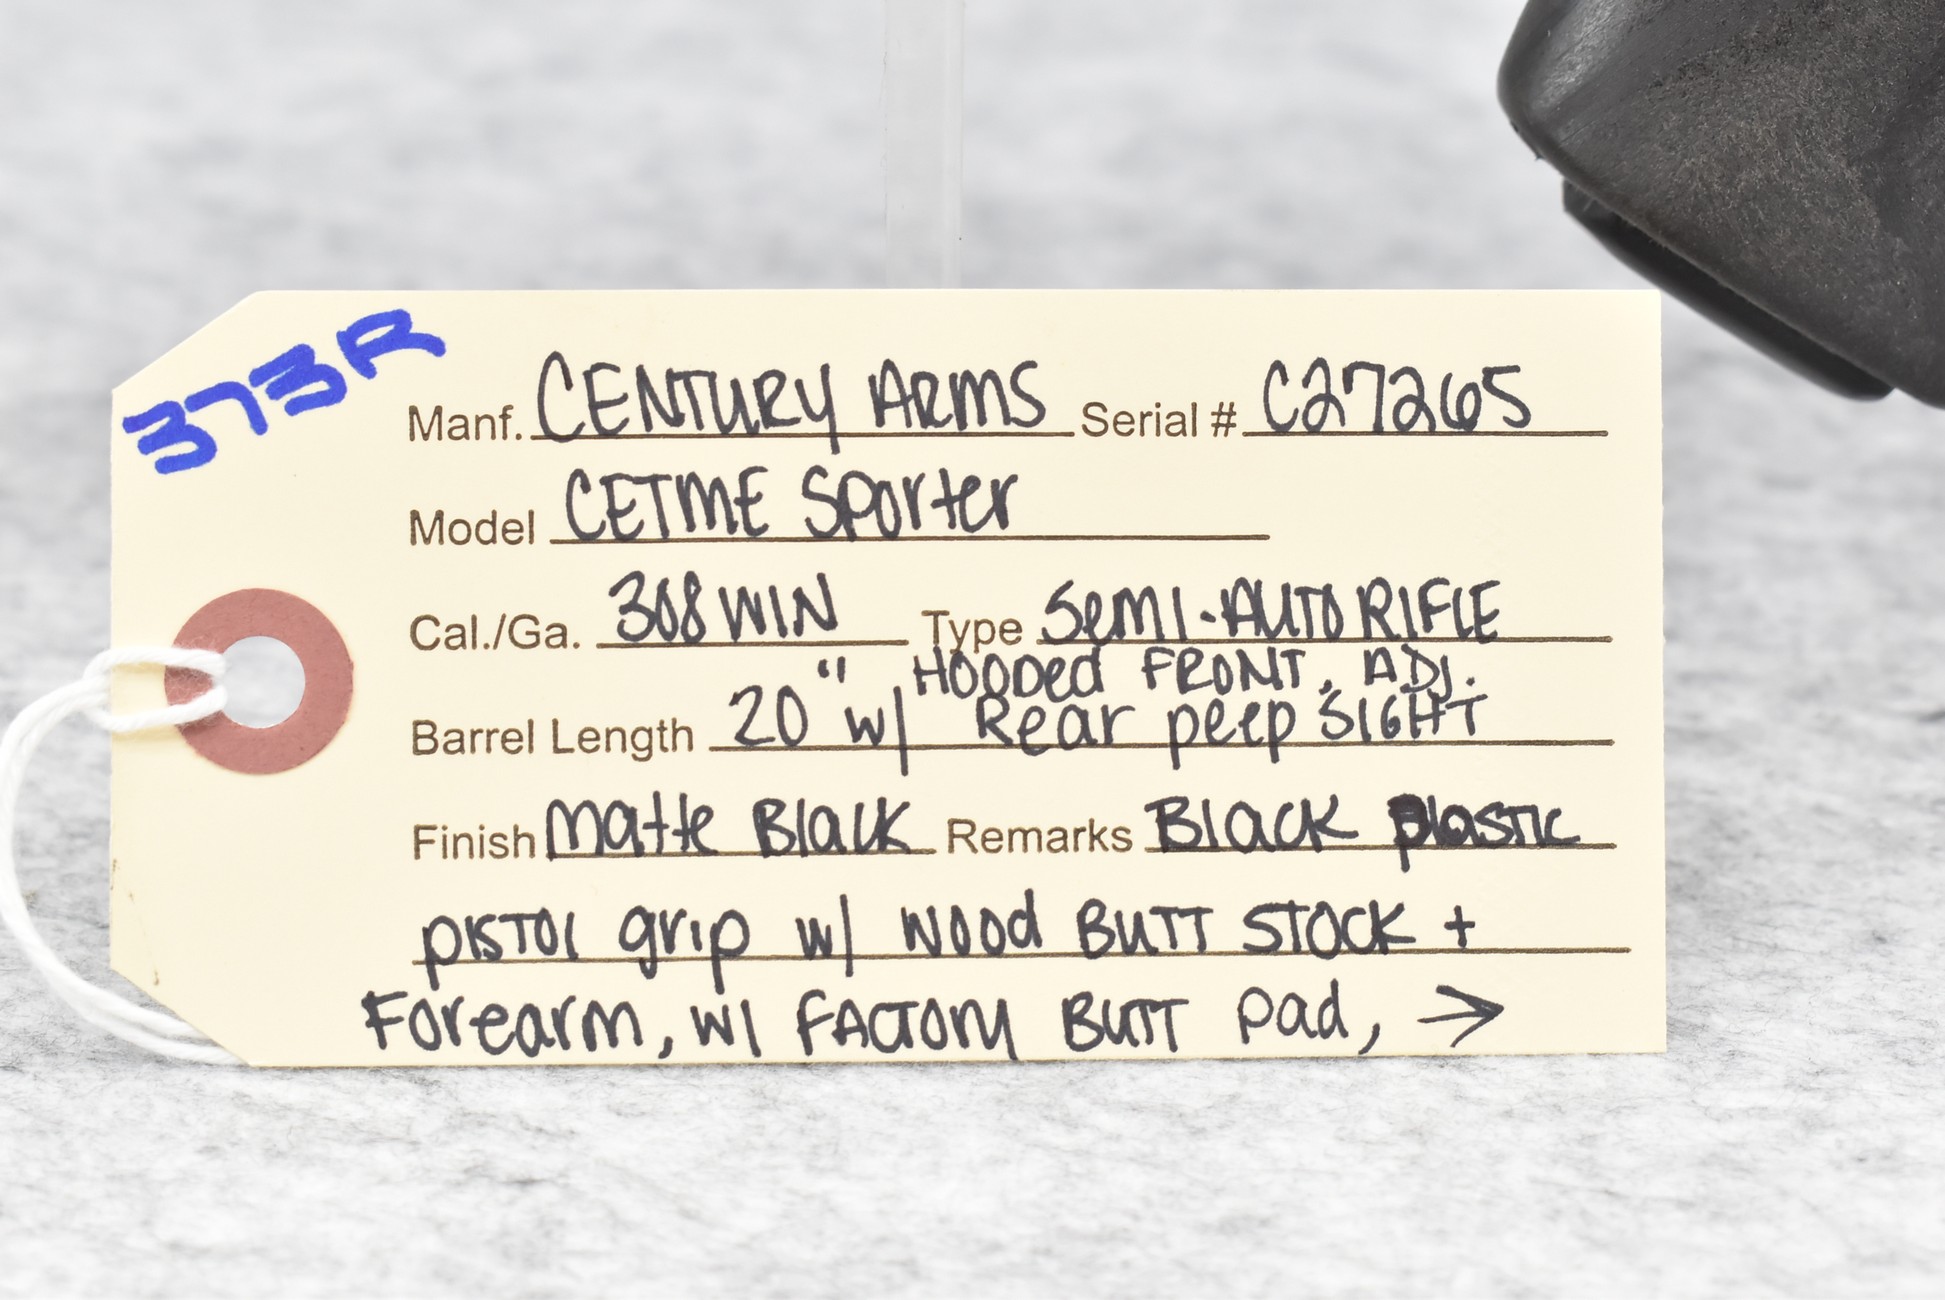 373R
Manf. CENTURY ARMS Serial # C27265
Model CETME Sporter
Cal./Ga. 308 WIN Type Semi-AUTO RIFLE
Hooded FRONT, ADJ.
Barrel Length 20" w/ Rear peep SIGHT
Finish Matte Black Remarks Black plastic
pistol grip w/ wood BUTT STOCK +
Forearm, w/ FACTORY BUTT pad, →